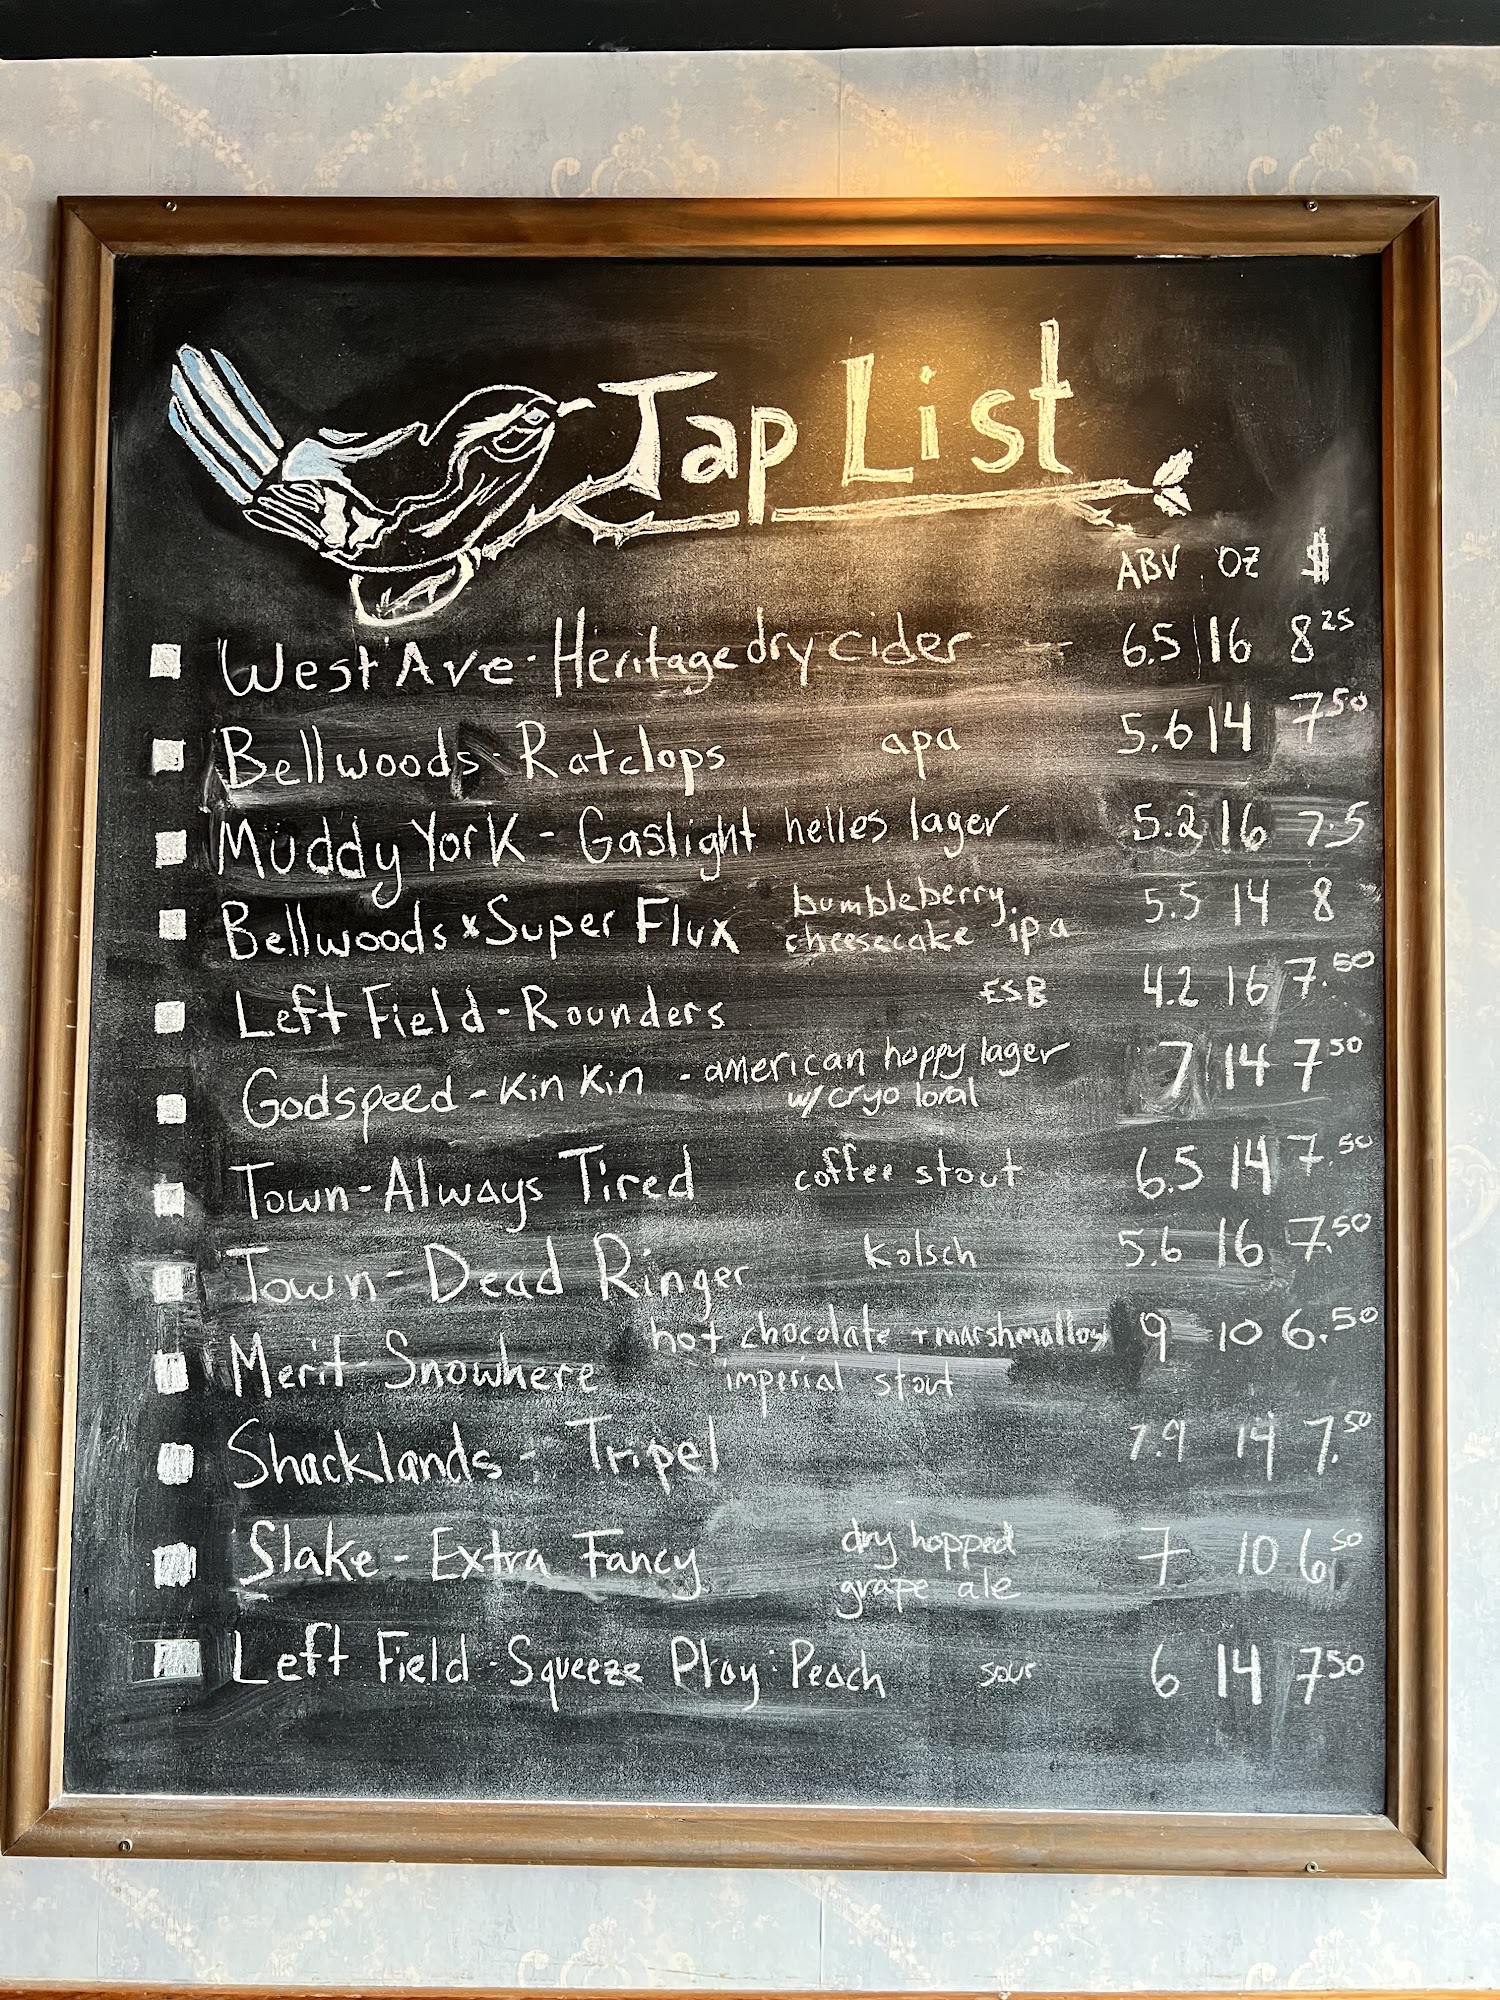 Tap List
ABV OZ $
West Ave - Heritage dry cider 6.5 16 8 25
Bellwoods - Ratclops apa 5.6 14 7 50
Muddy York - Gaslight helles lager 5.2 16 7.5
Bellwoods x Super Flux bumbleberry cheesecake ipa 5.5 14 8
Left Field - Rounders ESB 4.2 16 7.50
Godspeed - Kin Kin - american hoppy lager w/ cryo loral 7 14 7 50
Town - Always Tired coffee stout 6.5 14 7.50
Town - Dead Ringer Kolsch 5.6 16 7.50
Merit - Snowhere hot chocolate + marshmallow imperial stout 9 10 6.50
Shacklands - Tripel 7.9 14 7.50
Slake - Extra Fancy dry hopped grape ale 7 10 6 50
Left Field - Squeeze Play: Peach sour 6 14 7 50